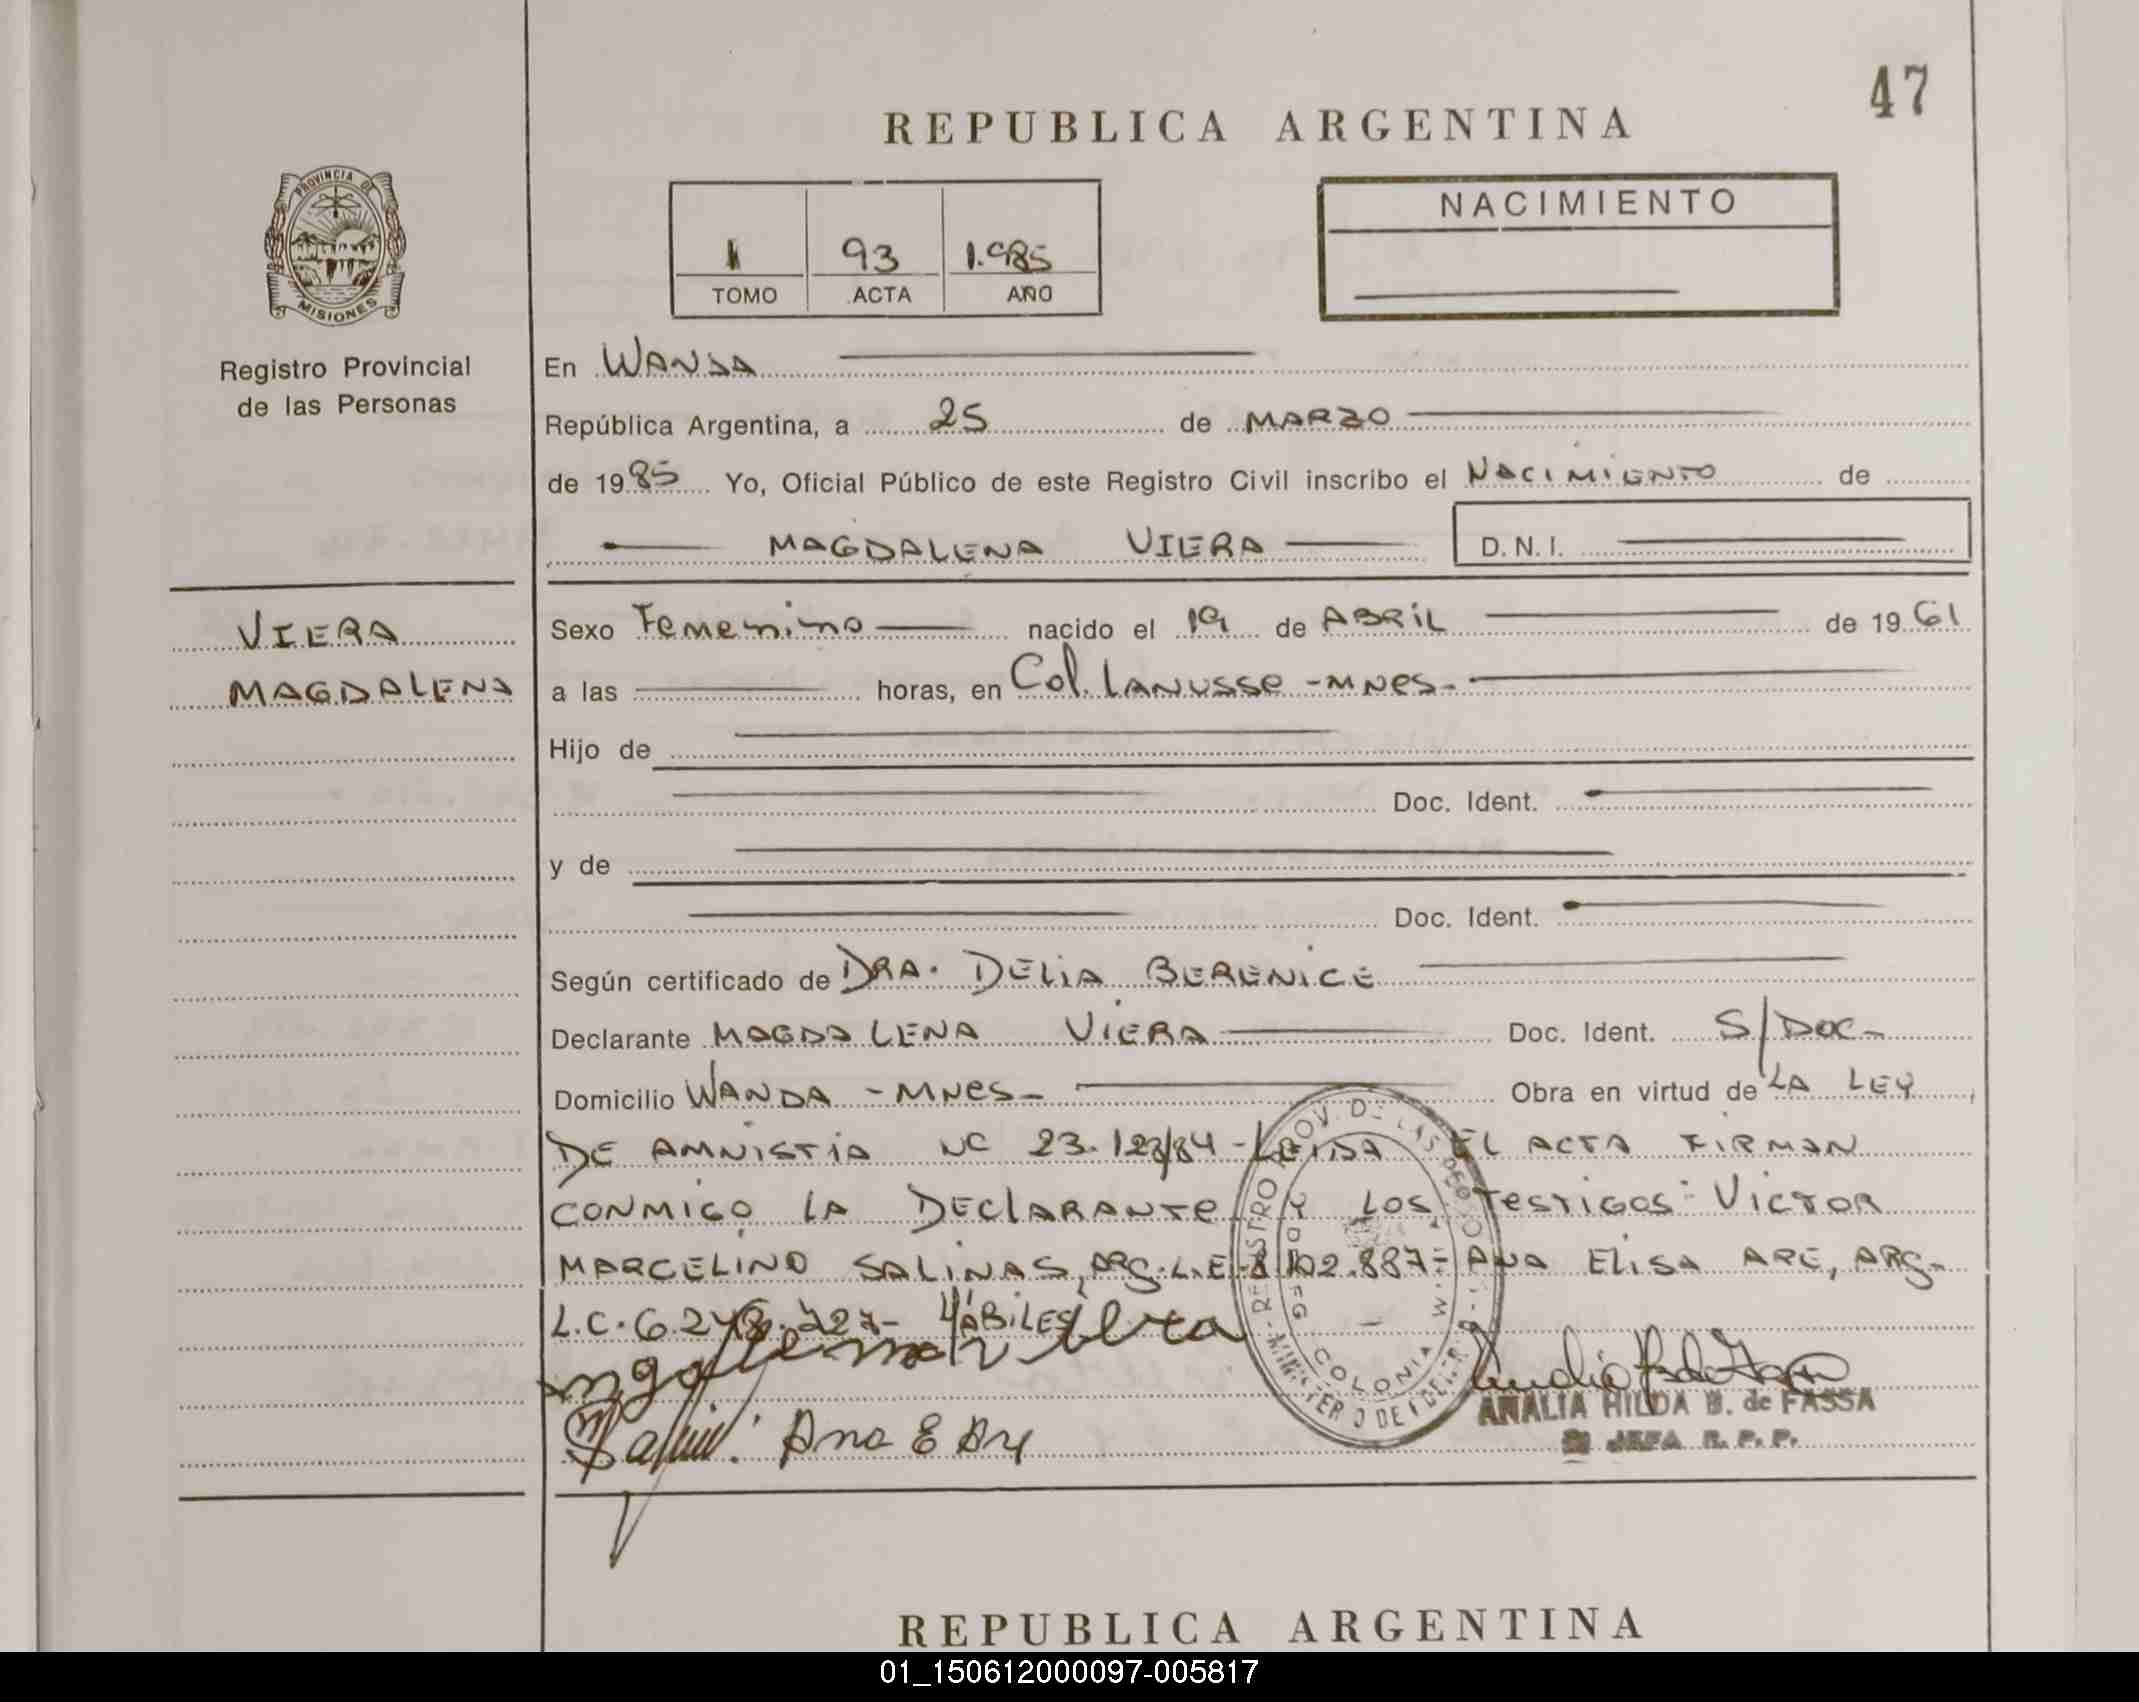 47
REPUBLICA ARGENTINA
PROVINCIA DE
MISIONES
Registro Provincial
de las Personas
1 93 1.985
TOMO ACTA AÑO
NACIMIENTO
En WANDA
República Argentina, a 25 de MARZO
de 1985 Yo, Oficial Público de este Registro Civil inscribo el NACIMIENTO de
MAGDALENA VIERA D.N.I.
VIERA
MAGDALENA
Sexo Femenino nacido el 19 de ABRIL de 1961
a las horas, en Col. LANUSSE -MNES-
Hijo de
Doc. Ident.
y de
Doc. Ident.
Según certificado de DRA. DELIA BERENICE
Declarante MAGDALENA VIERA Doc. Ident. S/DOC-
Domicilio WANDA -MNES- Obra en virtud de LA LEY
DE AMNISTIA Nº 23.128/84 - LEIDA EL ACTA FIRMAN
CONMIGO LA DECLARANTE Y LOS TESTIGOS: VICTOR
MARCELINO SALINAS, ARG. L.E. 8.102.887- ANA ELISA ARE, ARG-
L.C. 6.248.727- HÁBILES
Ana E Are
COLONIA WANDA
ANALIA HILDA B. de FASSA
JEFA R. P. P.
REPUBLICA ARGENTINA
01_150612000097-005817